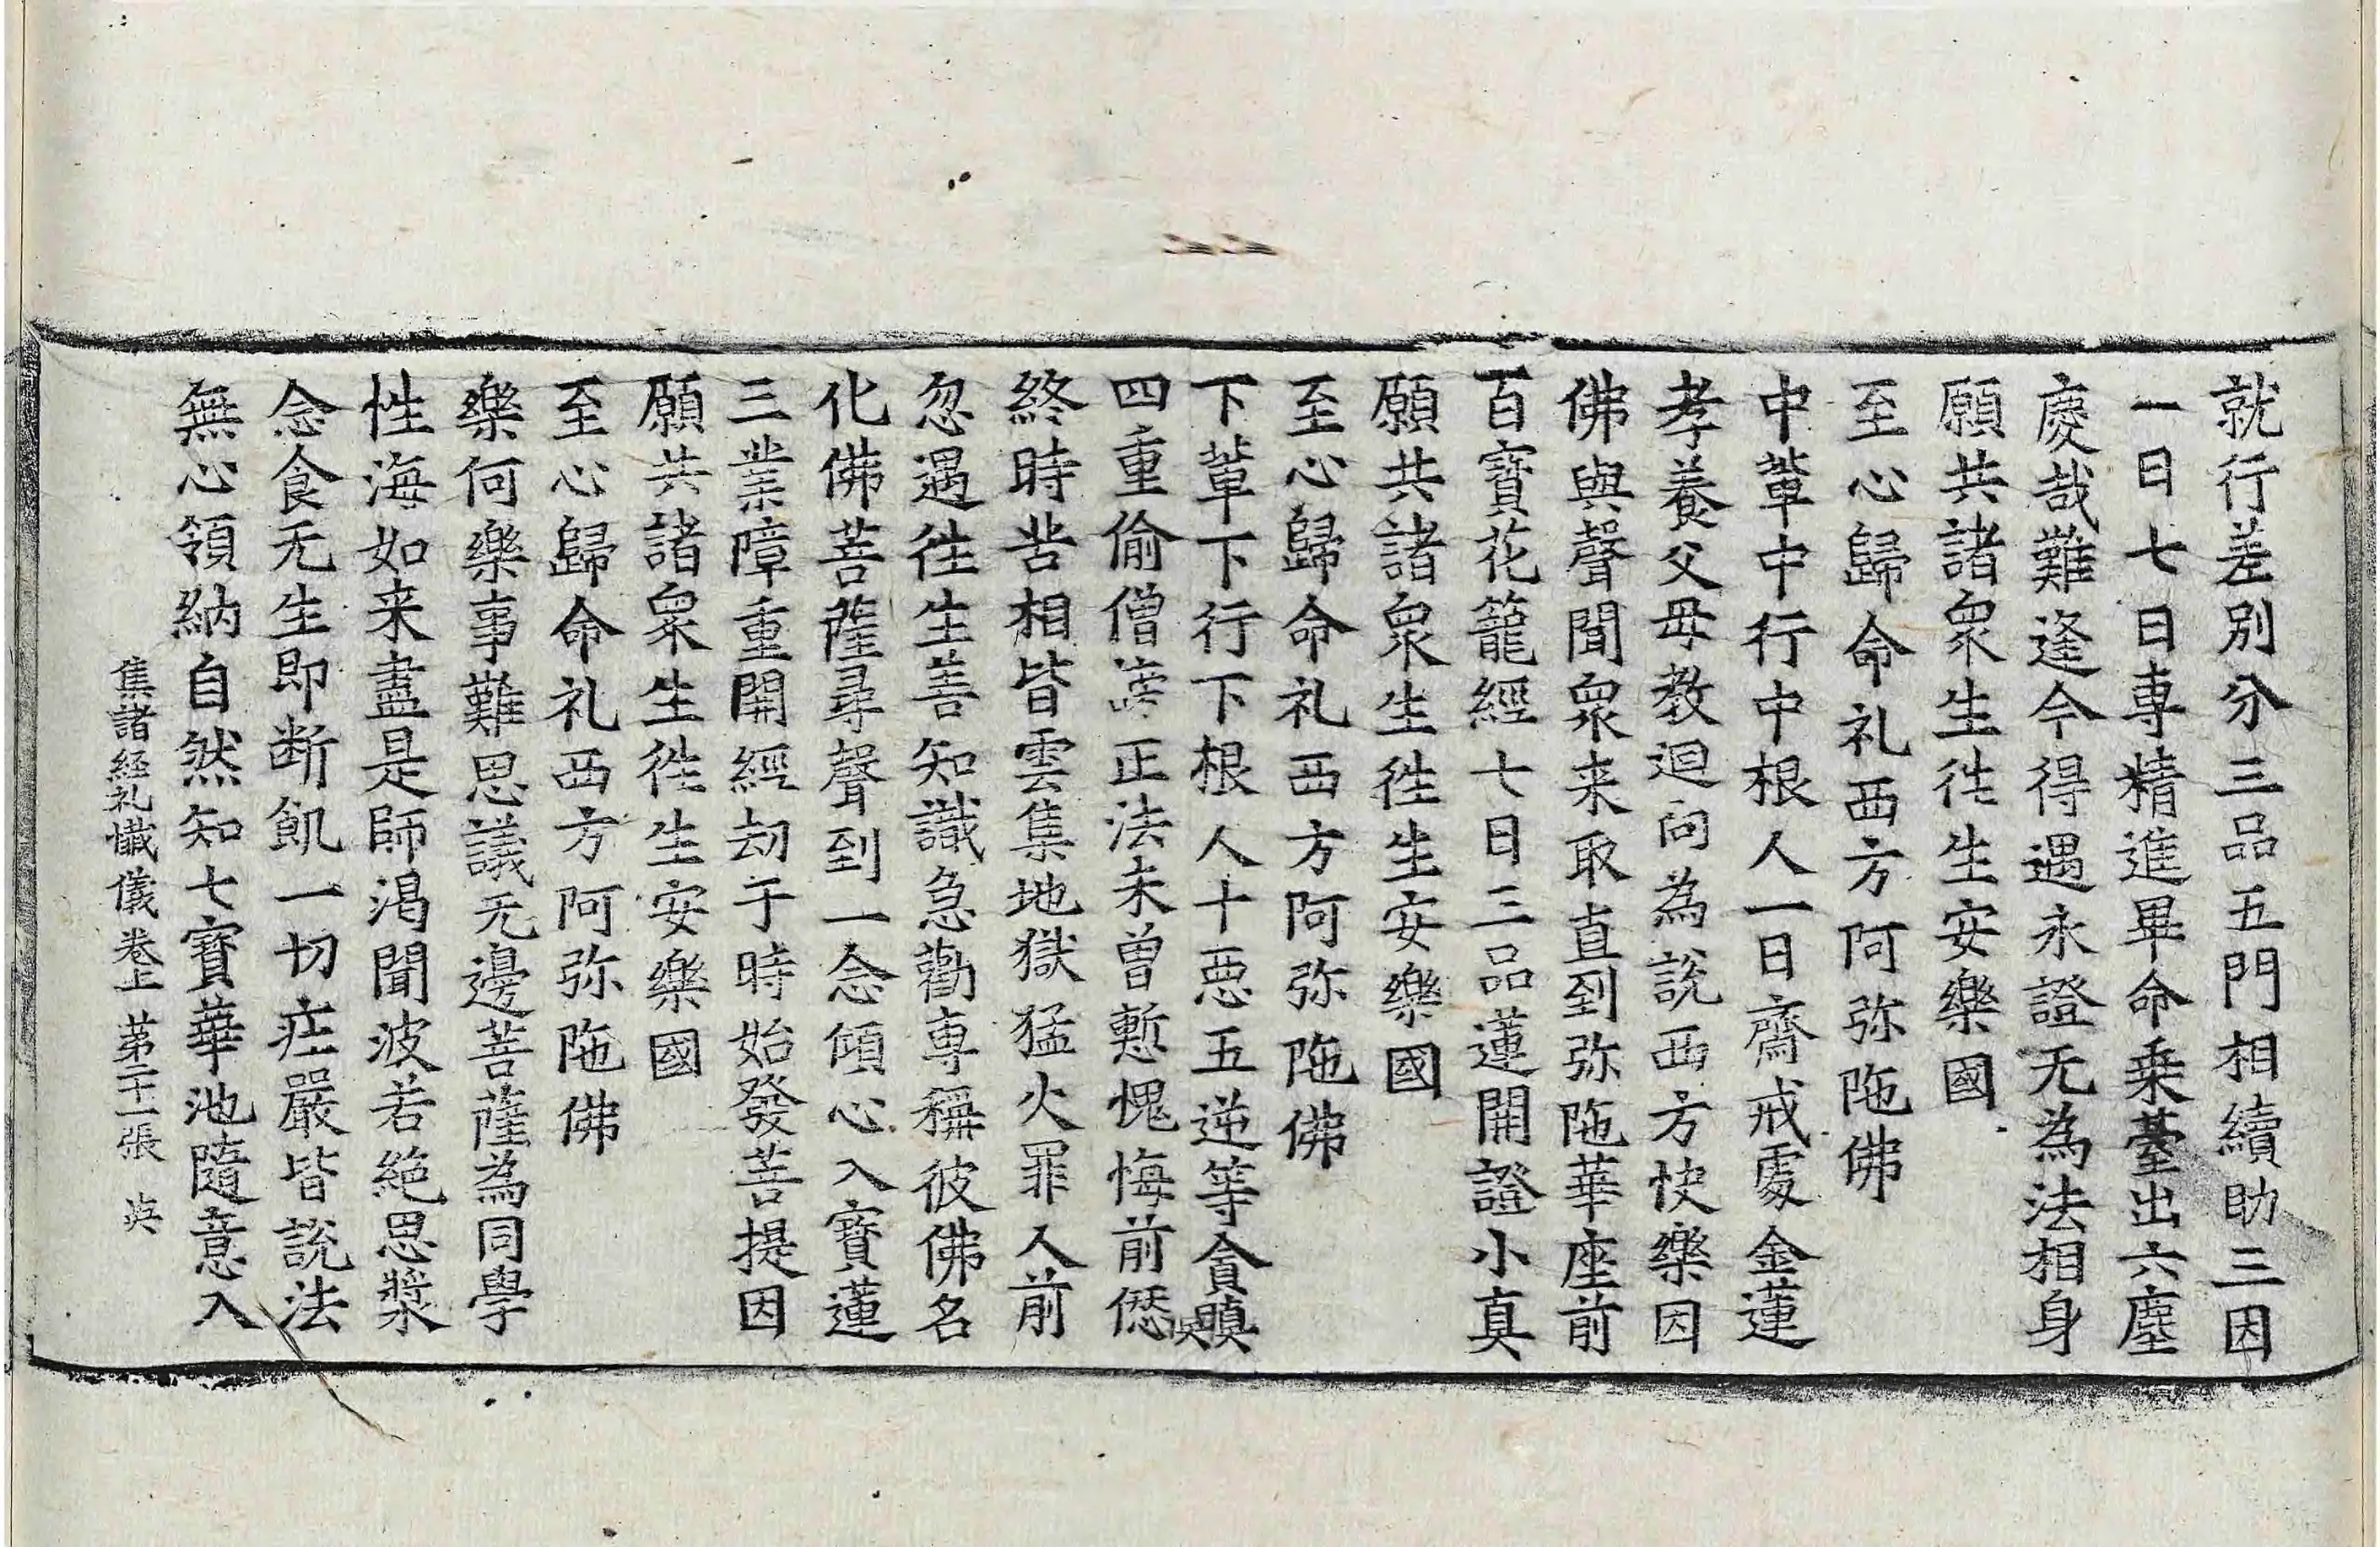 就行差別分三品五門相續助三因
一日七日專精進畢命乗臺出六塵
慶哉難逢今得遇永證无為法相身
願共諸衆生徃生安樂國
至心歸命礼西方阿弥陁佛
中輩中行中根人一日齋戒處金蓮
孝養父母教迴向為說西方快樂因
佛與聲聞衆来取直到弥陁華座前
百寶花籠經七日三品蓮開證小真
願共諸衆生徃生安樂國
至心歸命礼西方阿弥陁佛
下輩下行下根人十惡五逆等貪瞋
四重偷僧謗正法未曾慙愧悔前愆
終時苦相皆雲集地獄猛火罪人前
忽遇徃生善知識急勸專稱彼佛名
化佛菩薩尋聲到一念傾心入寶蓮
三業障重開經劫于時始發菩提因
願共諸衆生徃生安樂國
至心歸命礼西方阿弥陁佛
樂何樂事難思議无邊菩薩為同學
性海如来盡是師渴聞波若絕思漿
念食无生即断飢一切庄嚴皆說法
無心領納自然知七寶華池隨意入
集諸經礼懺儀卷上 苐二十一張 英